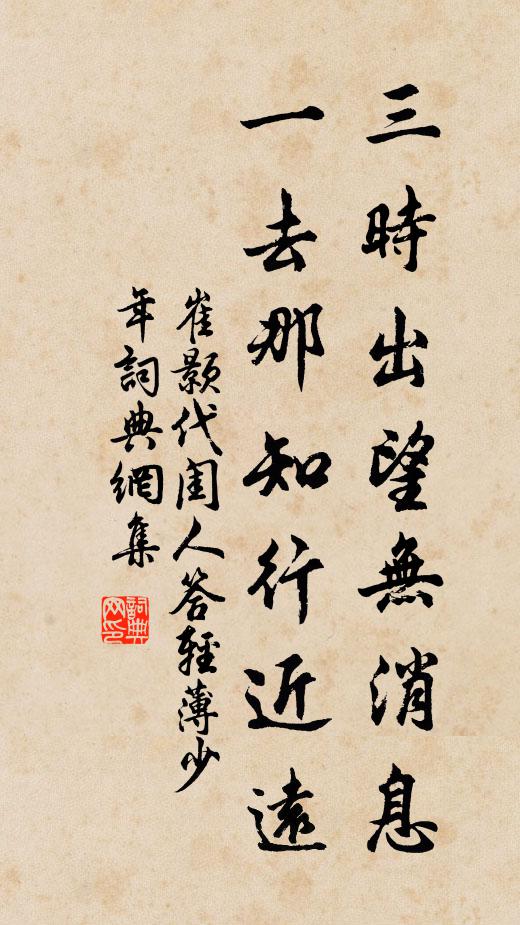 三時出望無消息
一去那知行近遠
崔顥代閨人答輕薄少
年詞典網集
詞典網印